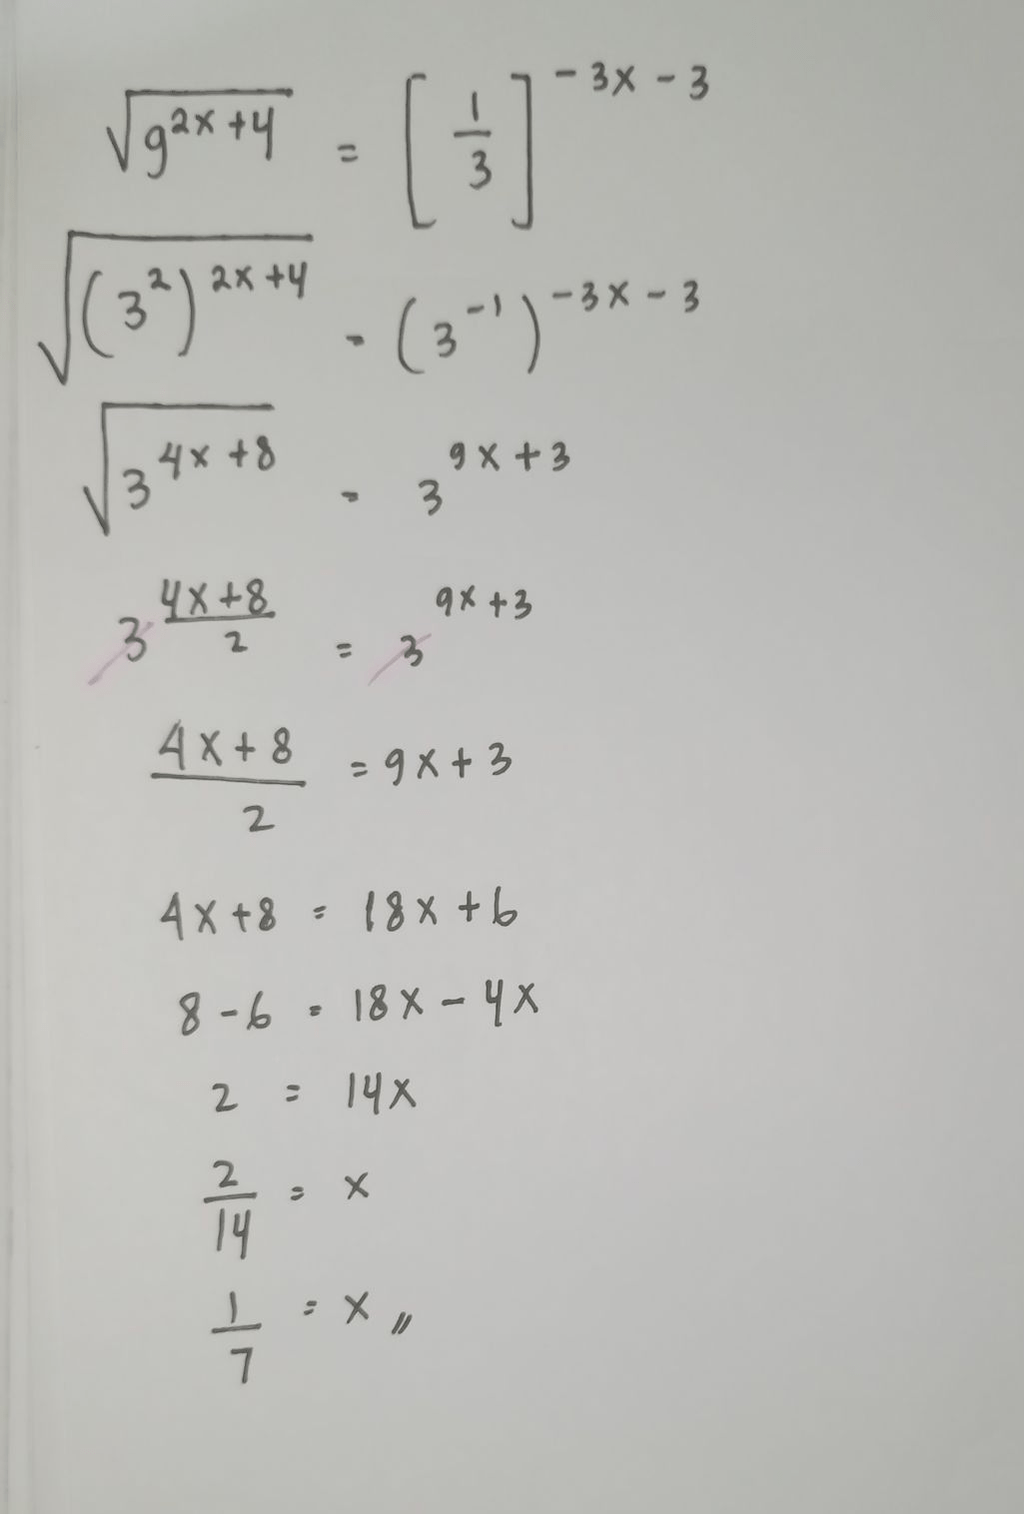 √(9^(2x+4)) = [1/3]^(-3x-3)
√((3^2)^(2x+4)) = (3^(-1))^(-3x-3)
√(3^(4x+8)) = 3^(9x+3)
3^((4x+8)/2) = 3^(9x+3)
(4x+8)/2 = 9x+3
4x+8 = 18x+6
8-6 = 18x-4x
2 = 14x
2/14 = x
1/7 = x //